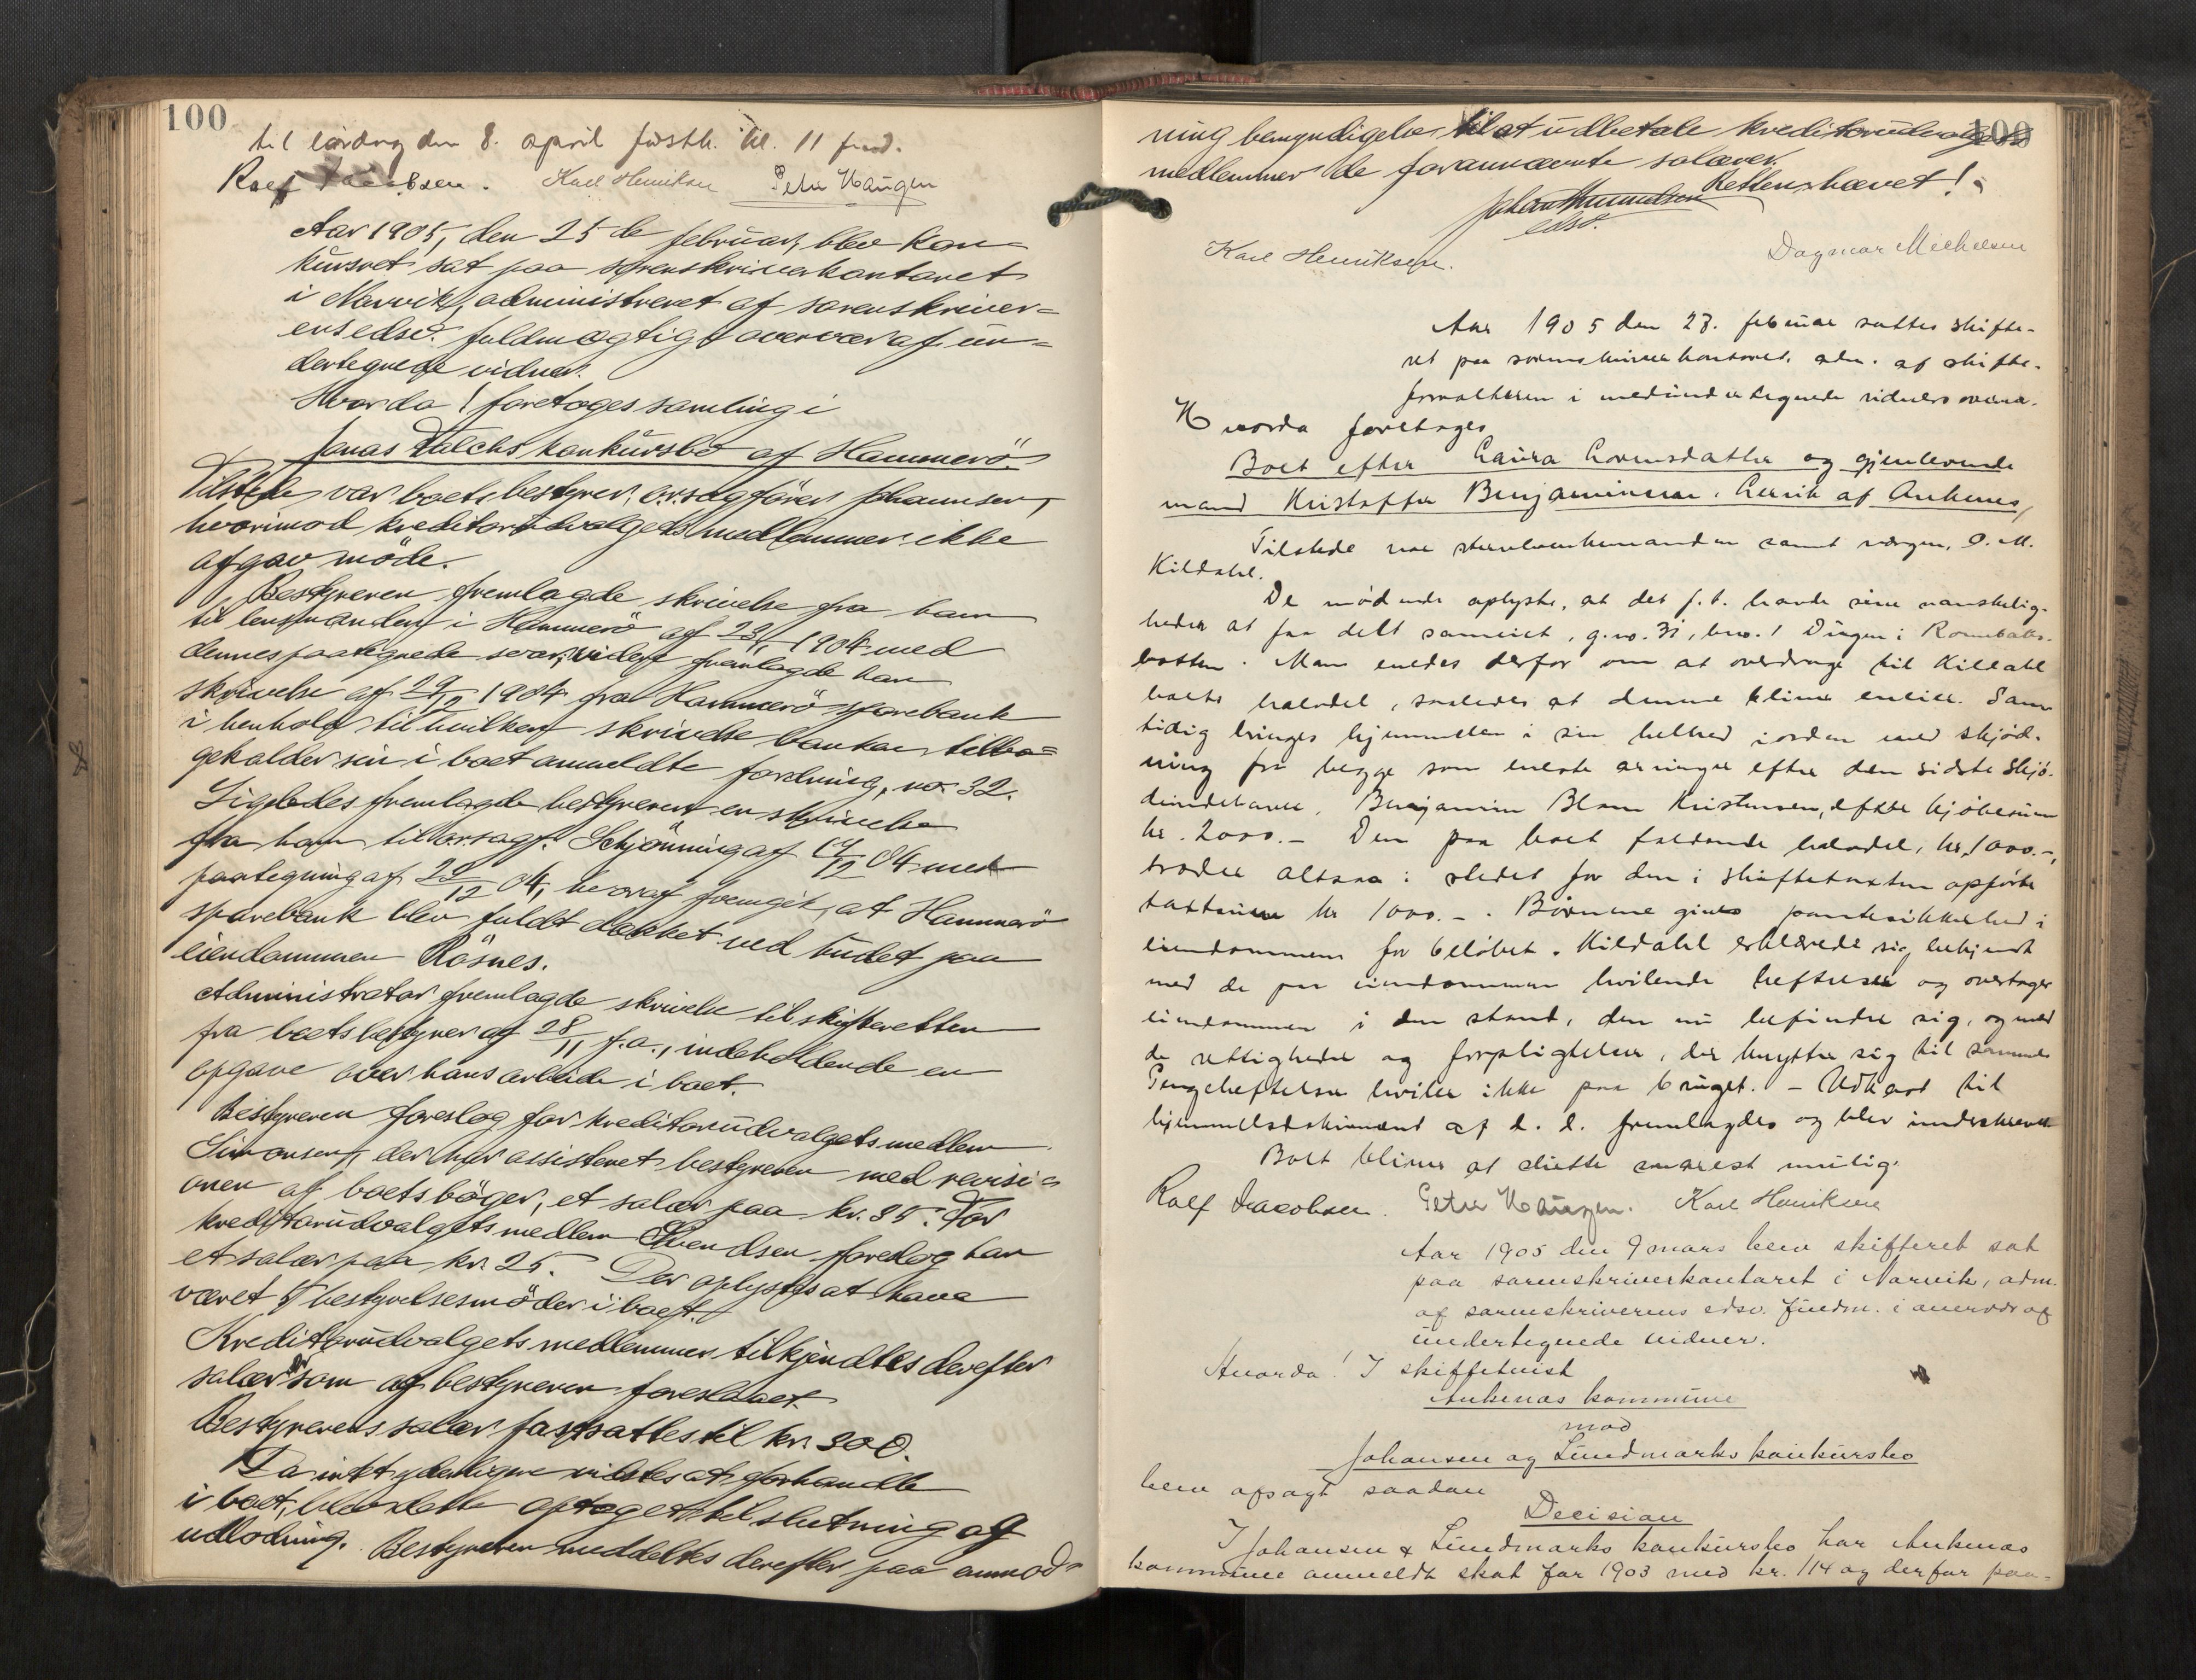 100
til lördag den 8. april förstk. kl. 11 fmd.
Rolf Jacobsen. Karl Henriksen Peter Haugen
Aar 1905, den 25de februar, blev kon-
kursret sat paa sorenskriverkontoret
i Narvik, administreret af sorenskriver-
ens edsv. fuldmægtig i overvær af un-
dertegnede vidner.
Hvorda! foretoges samling i
Jonas Falchs konkursbo af Hammerö.
Tilstede var boets bestyrer, o.r.sagförer Johannsen,
hvorimod kreditorudvalgets medlemmer ikke
afgav möde.
Bestyreren fremlagde skrivelse fra ham
til lensmanden i Hammerö af 23/11 1904 med
dennes paategnede svar, videre fremlagde han
skrivelse af 29/12 1904 fra Hammerö sparebank
i henhold til hvilken skrivelse banken tilba-
gekalder sin i boet anmeldte fordring, no. 32.
Ligeledes fremlagde bestyreren en skrivelse
fra ham til o.r.sagf. Schjönning af 17/12 04 med
paategning af 22/12 04, hvoraf fremgik, at Hammerö
sparebank blev fuldt dækket ved budet paa
eiendommen Rösnes.
Administrator fremlagde skrivelse til skifteretten
fra boets bestyrer af 28/11 f.a., indeholdende en
opgave over hans arbeide i boet.
Bestyreren foreslog for kreditorudvalgets medlem
Simonsen, der har assisteret bestyreren med revisi-
onen af boets böger, et salær paa kr. 35. For
kreditorudvalgets medlem Svendsen foreslog han
et salær paa kr. 25. Der oplystes at have
været 5 bestyrelsesmöder i boet.
Kreditorudvalgets medlemmer tilkjendtes derefter
salær som af bestyreren foreslaaet.
Bestyrerens salær fastsattes til kr. 300.
Da intet yderligere vidstes at forhandle
i boet, blev dette optaget til slutning og
udlodning. Bestyreren meddeltes derefter paa anmod-
100
ning bemyndigelse til at udbetale kreditorudvalgets
medlemmer de forannævnte salærer.
Retten hævet!
Johan Amundsen
edsv.
Karl Henriksen. Dagmar Michelsen
Aar 1905 den 28. februar sattes skifte-
ret paa sorenskriverkontoret, adm. af skifte-
forvalteren i medundertegnede vidners overv.
Hvorda foretoges
Boet efter Laura Lorensdatter og gjenlevende
mand Kristoffer Benjaminsen, Leirvik af Ankenes,
Tilstede var sterbbenkemanden samt værgen, O. M.
Kildahl.
De mödende oplyste, at det f. t. havde sine vanskelig-
heder at faa delt sameiet, g.no. 31, bno. 1 Dingen i Rombaks-
botten. Man enedes derfor om at overdrage til Kildahl
boets halvdel, saaledes at denne bliver eneeier. Sam-
tidig bringes hjemmelen i sin helhed iorden med skjöd-
ning fra begge som eneste arvinger efter den sidste skjö-
deindehaver, Benjamin Blom Kristensen, efter kjöbesum
kr. 2000.- Den paa boet faldende halvdel, kr. 1000.-,
træder altsaa i stedet for den i skiftetaxten opförte
taxtsum kr 1000.-. Börnene gives pantesikkerhed i
eiendommen for belöbet. Kildahl erklærede sig bekjendt
med de paa eiendommen hvilende heftelser og overtager
eiendommen i den stand, den nu befinder sig, og med
de rettigheder og forpligtelser, der knytter sig til samme
Pengeheftelser hviler ikke paa bruget. - Udkast til
hjemmelsdokument af d. d. fremlagdes og blev underskrevet
Boet bliver at slutte snarest mulig.
Rolf Jacobsen. Peter Haugen. Karl Henriksen
Aar 1905 den 9 mars blev skifteret sat
paa sorenskriverkontoret i Narvik, adm.
af sorenskriverens edsv. fuldm. i overvær af
undertegnede vidner.
Hvorda! I skiftetvist
Ankenes kommune
mod
Johansen og Lundmarks konkursbo
blev afsagt saadan
Decision
I Johansen & Lundmarks konkursbo har Ankenes
kommune anmeldt skat for 1903 med kr. 114 og derfor paa-